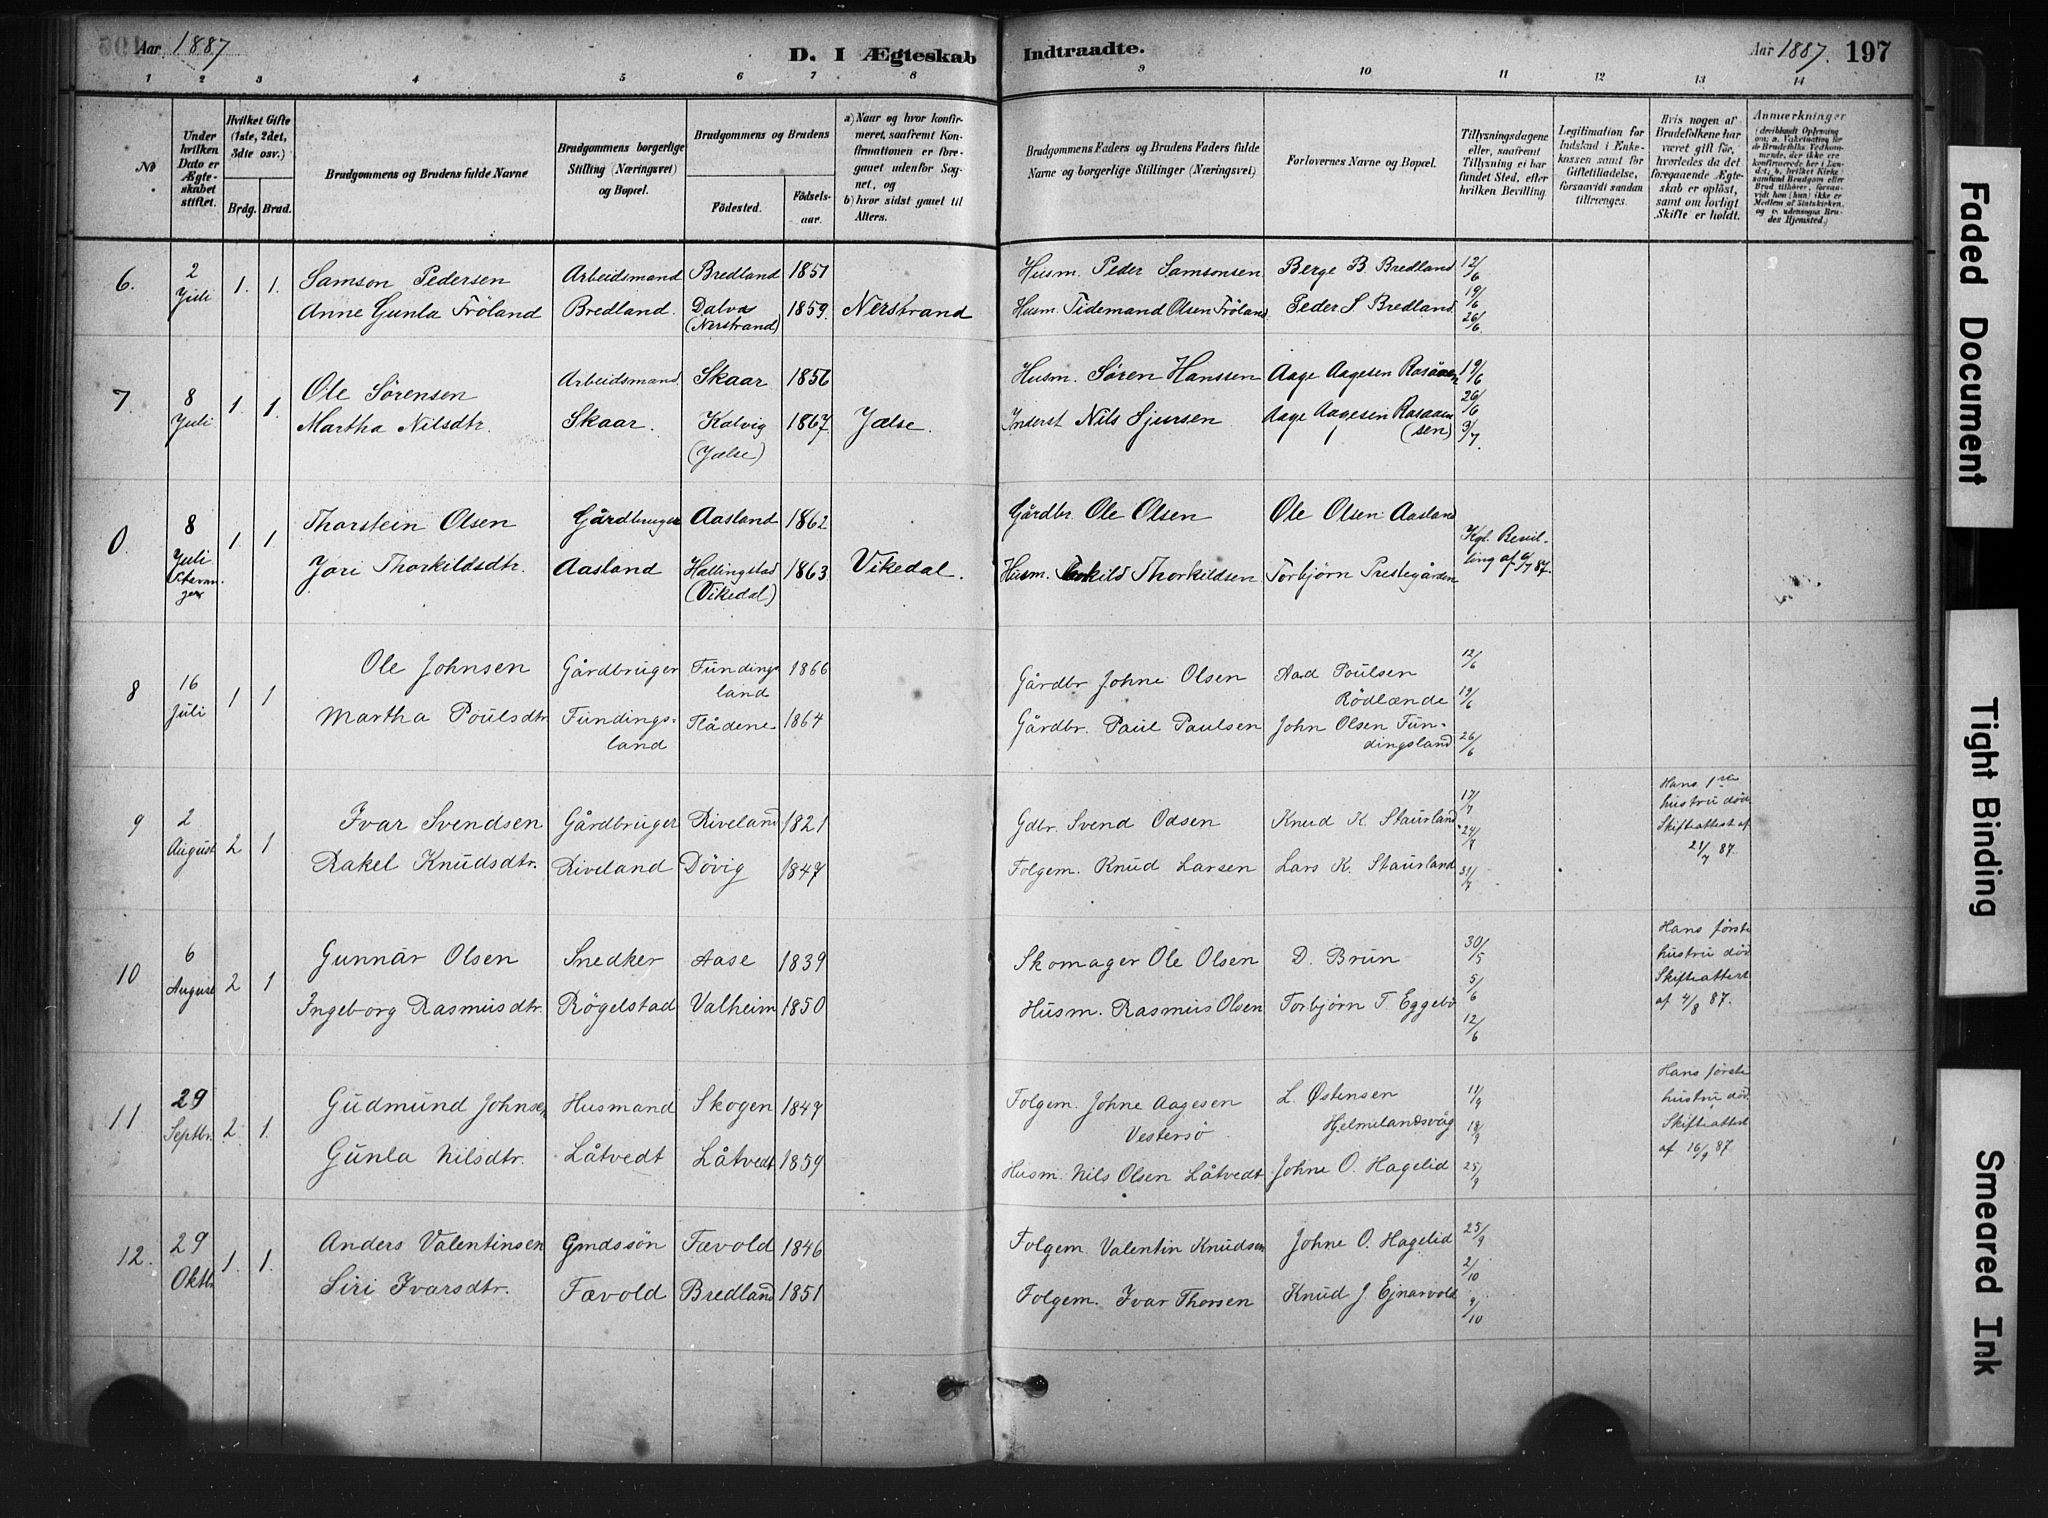 Aar 1887
D. I Ægteskab
Indtraadte.
Aar 1887. 197
1 2 3 4 5 6 7 8 9 10 11 12 13 14
No
Under hvilken Dato er Ægteskabet stiftet.
Hvilket Gifte (1ste, 2det, 3die osv.)
Brdg. Brud.
Brudgommens og Brudens fulde Navne
Brudgommens borgerlige Stilling (Næringsvei) og Bopæl.
Brudgommens og Brudens
Fødested.
Fødselsaar.
a) Naar og hvor konfirmeret, saafremt Konfirmationen er foregaaet udenfor Sognet, og
b) hvor sidst gaaet til Alters.
Brudgommens Faders og Brudens Faders fulde Navne og borgerlige Stillinger (Næringsvei)
Forlovernes Navne og Bopæl.
Tillysningsdagene eller, saafremt Tillysning ei har fundet Sted, efter hvilken Bevilling.
Legitimation for Indskud i Enkekassen samt for Giftetilladelse, forsaavidt saadan tiltrænges.
Hvis nogen af Brudefolkene har været gift før, hvorledes da det foregaaende Ægteskab er opløst, samt om lovligt Skifte er holdt.
Anmærkninger
6. 2 Juli 1. 1. Samson Pedersen Arbeidsmand Bredland 1851 Husm. Peder Samsonsen Berge B. Bredland 12/6
Anne Gunla Fröland Bredland. Dalva (Nerstrand) 1859. Nerstrand Husm. Tidemand Olsen Fröland. Peder S Bredland. 19/6 26/6.
7. 8 Juli 1. 1. Ole Sørensen Arbeidsmand. Skaar 1856 Husm. Søren Hanssen Aage Aagesen 19/6
Martha Nilsdtr. Skaar. Kalvig (Jælse) 1867. Jælse. Inderst Nils Sjursen Aage Aagesen (sen) 26/6 3/7.
0. 8 Juli 1. 1 Thorstein Olsen Gårdbruger Aasland 1862 Gårdbr. Ole Olsen Ole Olsen Aasland Kgl. Bevilling af 6/7 87.
Jori Thorkildsdtr. Aasland Hallingstad (Vikedal) 1863 Vikedal. Husm. Thorkildsen Torbjörn Prestegården
8 16 Juli 1 1 Ole Johnsen Gårdbruger Fundingsland 1866 Gårdbr Johne Olsen Aad Poulsen Rödlænde 12/6 19/6
Martha Poulsdtr. Fundingsland Flådene 1864 Gårdbr. Paul Paulsen John Olsen Fundingsland 26/6
9 2 August 2 1 Ivar Svendsen Gårdbruger Riveland 1821 Gdbr. Svend Odsen Knud K. Staurland 17/7 24/7 Hans 1ste hustru död Skifteattest af 21/7 87.
Rakel Knudsdtr. Riveland Dövig 1847 Folgem. Knud Larsen Lars K. Staurland 31/7
10 6 August 2 1 Gunnar Olsen Snedker Aase 1839 Skomager Ole Olsen D. Brun 30/5 5/6 Hans förste hustru död Skifteattest af 4/8 87.
Ingeborg Rasmusdtr. Rögelstad Valheim 1850 Husm. Rasmus Olsen Torbjörn T. Eggebö 12/6
11 29 Septbr. 2. 1. Gudmund Johnsen Husmand Skogen 1847 Folgem. Johne Aagesen Vestersö L. Østensen Hjelmelandsvåg 11/9 18/9 Hans förste hustru död Skifteattest af 16/9 87.
Gunla Nilsdtr. Låtvedt Låtvedt 1859 Husm. Nils Olsen Låtvedt Johne O. Hagelid 25/9
12. 29 Oktbr 1. 1. Anders Valentinsen Gmdssön Fævold 1846 Folgem. Valentin Knudsen Johne O. Hagelid 25/9 2/10
Siri Ivarsdtr. Fævold Bredland 1851 Folgem. Ivar Thorsen Knud J Ejnarvold 9/10
Faded Document
Tight Binding
Smeared Ink